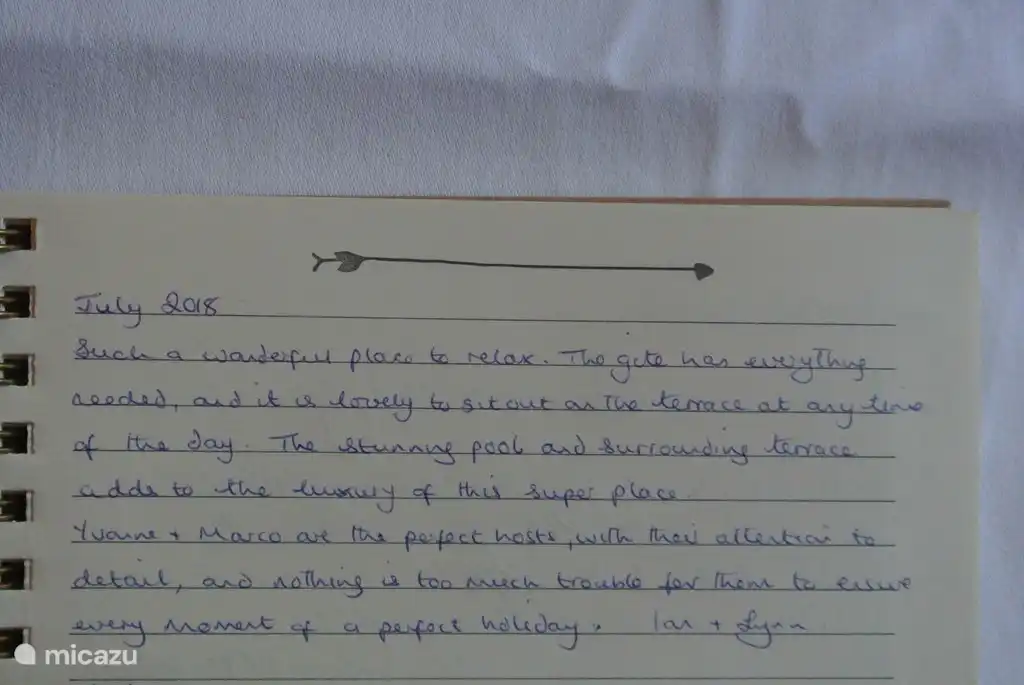 July 2018
Such a wonderful place to relax. The gite has everything
needed, and it is lovely to sit out on the terrace at any time
of the day. The stunning pool and surrounding terrace
adds to the luxury of this super place.
Yvonne + Marco are the perfect hosts, with their attention to
detail, and nothing is too much trouble for them to ensure
every moment of a perfect holiday. Ian + Lynn
micazu